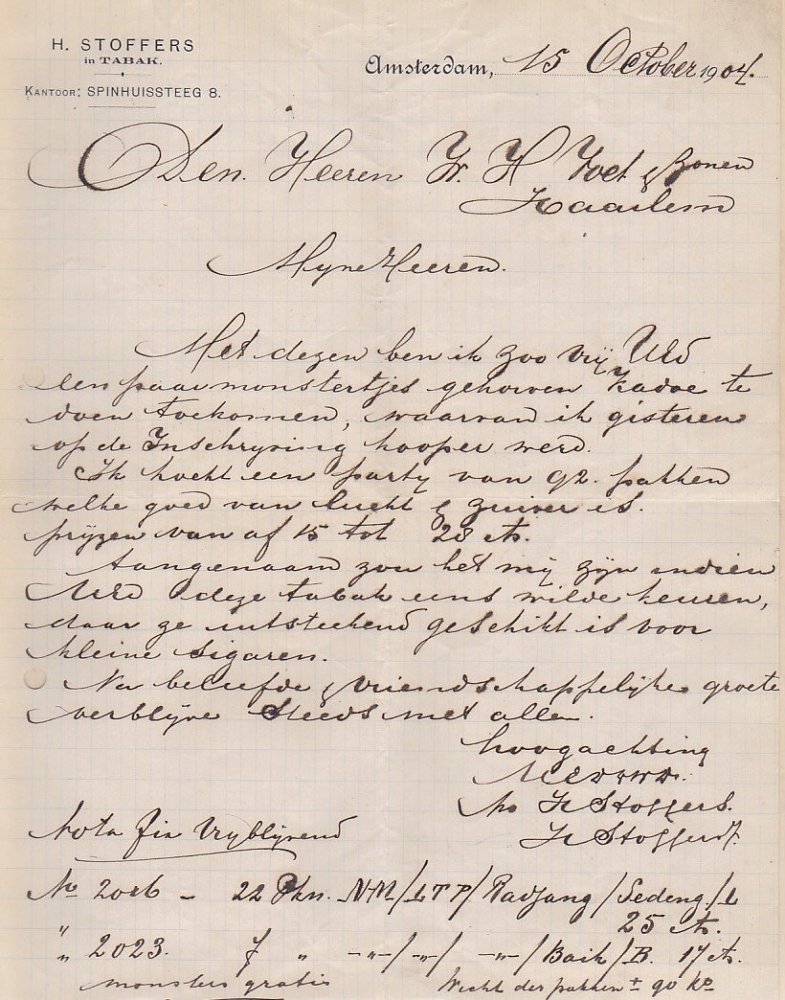 H. STOFFERS
in TABAK.
KANTOOR: SPINHUISSTEEG 8.
Amsterdam, 15 October 1904.
Den Heeren W. H Voet & Zonen
Haarlem
Myne Heeren.
Met dezen ben ik zoo vrij UEd
een paar monstertjes gehouwen te
doen toekomen, waarvan ik gisteren
op de Inschryving kooper werd.
Ik kocht een party van 92. pakken
welke goed van lucht & zuiver is.
pryzen van af 15 tot 28 cts.
Aangenaam zou het mij zyn indien
UEd deze tabak eens wilde keuren,
daar ze uitsteekend geschikt is voor
kleine sigaren.
Na beleefde & vriendschappelyke groete
verblyve steeds met alle.
hoogachting
UEDWDr.
H Stoffers.
H Stoffers Jr.
Nota fix Vryblyvend
No 2026 - 22 Pkn. NM/LTP/Radjang/Sedeng/L
25 cts.
" 2023. 7 " -"-/-"-/ -"-/Baik/B. 17 cts.
monsters gratis Wecht der pakken ± 90 Ko